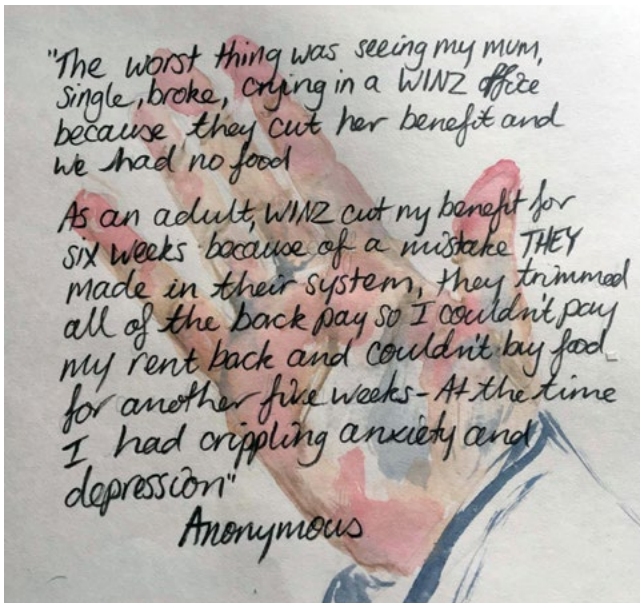 "The worst thing was seeing my mum,
single, broke, crying in a WINZ office
because they cut her benefit and
we had no food
As an adult, WINZ cut my benefit for
six weeks because of a mistake THEY
made in their system, they trimmed
all of the back pay so I couldn't pay
my rent back and couldn't buy food
for another five weeks - At the time
I had crippling anxiety and
depression"
Anonymous